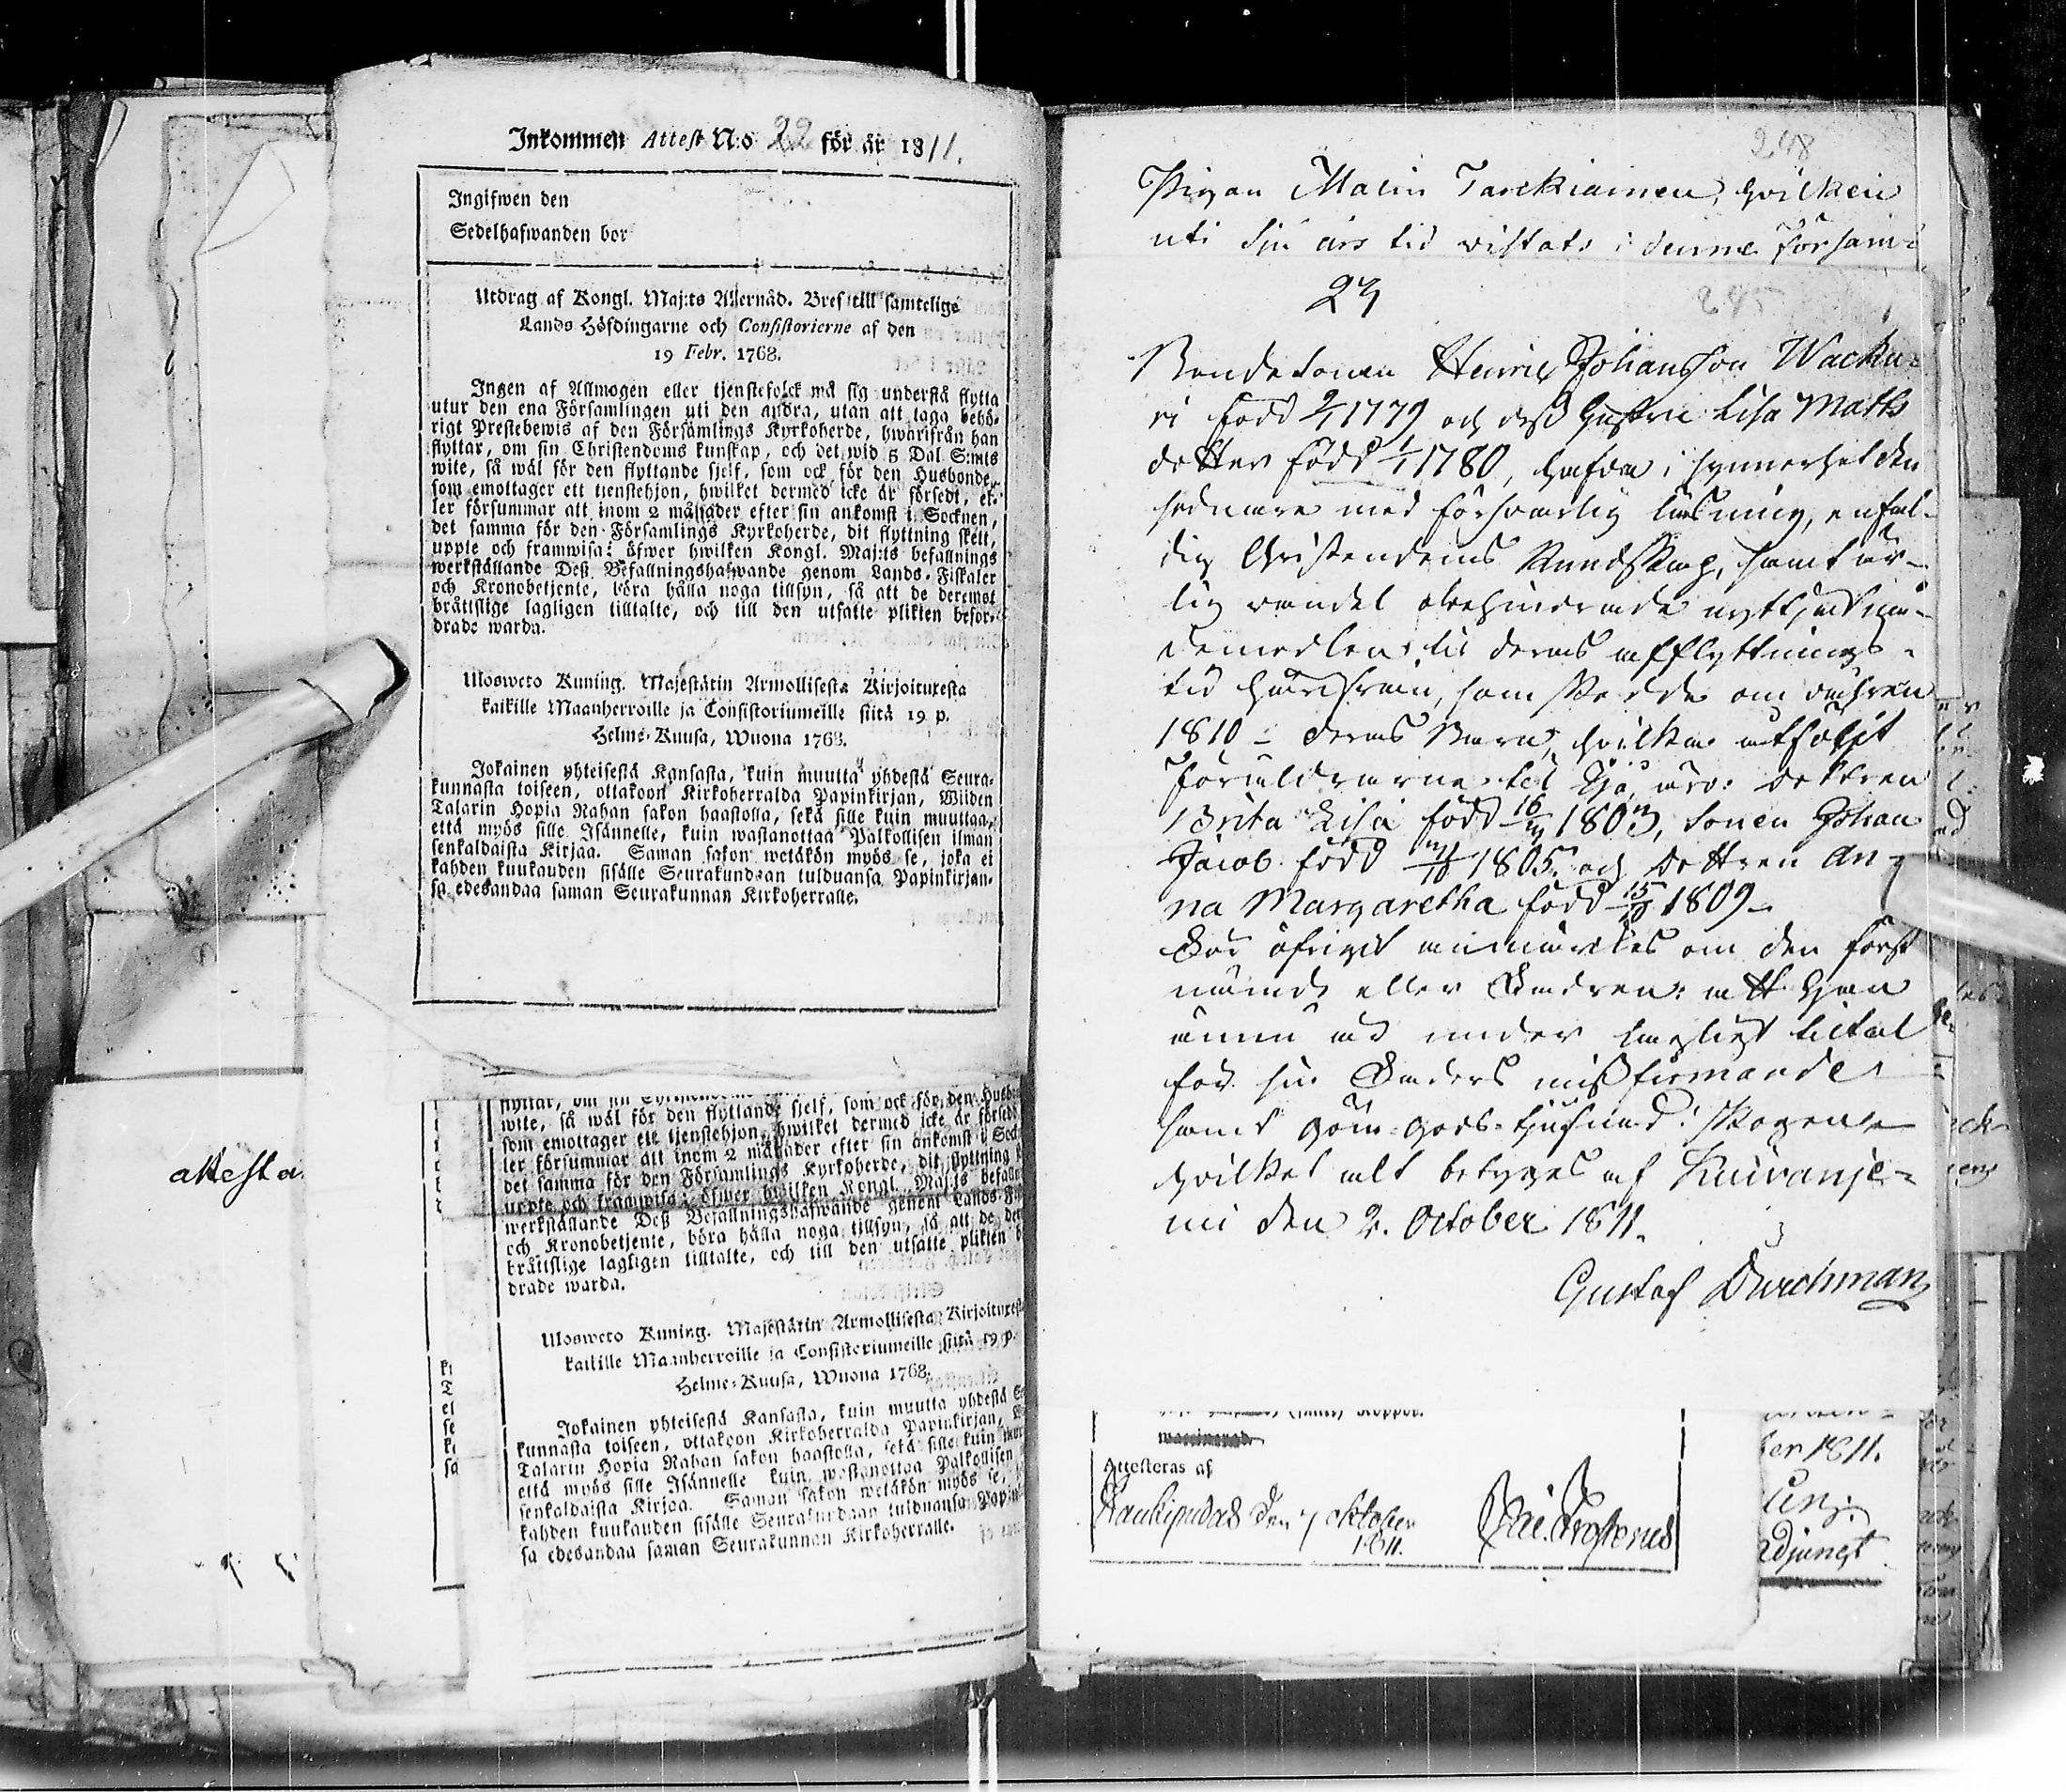 Inkommen Attest N:o 22 för år 1811.
Ingifwen den
Sedelhafwanden bor
Utdrag af Kongl. Maj:ts Allernåd. Bref till samtelige
Lands Höfdingarne och Consistorierne af den
19 Febr. 1768.
Ingen af Allmogen eller tjenstefolck må sig understå flytta
utur den ena Församlingen uti den andra, utan att taga behö-
rigt Prestebewis af den Församlings Kyrkoherde, hwarifrån han
flyttar, om sin Christendoms kunskap, och det wid 5 Dal. S:mts
wite, så wäl för den flyttande sjelf, som ock för den Husbonde,
som emottager ett tjenstehjon, hwilket dermed icke är försedt, el-
ler försummar att inom 2 månader efter sin ankomst i Socknen,
det samma för den Församlings Kyrkoherde, dit flyttning skett,
uppte och framwisa: öfwer hwilken Kongl. Maj:ts befallnings
werkställande Deß Befallningshafwande genom Lands-Fiskaler
och Kronobetjente, böra hålla noga tillsyn, så att de deremot
bråttslige lagligen tilltalte, och till den utsatte plikten befor-
drade warda.
Ulosweto Kuning. Majestätin Armollisesta Kirjoituxesta
kaikille Maanherroille ja Consistoriumeille siitä 19 p.
Helme-Kuusa, Wuona 1768.
Jokainen yhteisestä Kansasta, kuin muutta yhdestä Seura-
kunnasta toiseen, ottakoon Kirkoherralda Papinkirjan, Wiiden
Talarin Hopia Rahan sakon haastolla, sekä sille kuin muuttaa,
että myös sille Isännelle, kuin wastanottaa Palkollisen ilman
senkaldaista Kirjaa. Saman sakon wetäkön myös se, joka ei
kahden kuukauden sisälle Seurakundaan tulduansa Papinkirjan-
sa edesandaa saman Seurakunnan Kirkoherralle.
wite, så wäl för den flyttande sjelf, som ock för den
som emottager ett tjenstehjon, hwilket dermed icke är
ler försummar att inom 2 månader efter sin ankomst i
det samma för den Församlings Kyrkoherde, dit flyttning
uppte och framwisa: öfwer hwilken Kongl. Maj:ts
werkställande Deß Befallningshafwande genom
och Kronobetjente, böra hålla noga tillsyn, så att de
bråttslige lagligen tilltalte, och till den utsatte plikten
drade warda.
Ulosweto Kuning. Majestätin Armollisesta
kaikille Maanherroille ja Consistoriumeille siitä 19 p.
Helme-Kuusa, Wuona 1768.
Jokainen yhteisestä Kansasta, kuin muutta yhdestä
kunnasta toiseen, ottakoon Kirkoherralda Papinkirjan,
Talarin Hopia Rahan sakon haastolla, sekä sille kuin
että myös sille Isännelle kuin wastanottaa Palkollisen
senkaldaista Kirjaa. Saman sakon wetäkön myös se,
kahden kuukauden sisälle Seurakundaan tulduansa
sa edesandaa saman Seurakunnan Kirkoherralle.
attesta
248
Pigan Malin Tarckiainen, hvilken
uti sju års tid vistats i denne Försam-
23
245
Bondesonen Henric Johansson Wacku-
ri född 2/1 1779 och deß hustru Lisa Mats
dotter född 1/1 1780, hafva i synnerhet den
sednare med försvarlig läsning, enfal-
dig Christendoms Kundskap, samt är-
lig vandel obehindrade nyttjat nå-
demedlen til deras afflyttnings-
tid härifrån, som skedde om våhren
1810 - deras Barn, hvilka åtföljt
Föräldrarne til Ijo, äro: dottren
Brita Lisa född 1803, sonen Johan
Jacob född 1805 och dottren An-
na Margaretha född 15/10 1809
För öfrigt anmärkes om den först
nämde eller Fadren: att han
ännu är under lagligt tiltal
för sin Faders mißfirmande
samt göm-gods-tjufnad i skogen
hvilket alt betyges af Kuivanje-
mi den 2. October 1811.
Gustaf Durchman
koppor.
Attesteras af
Haukipudas den 7 oktober
1811.
Frosterus
ber 1811.
Adjunct